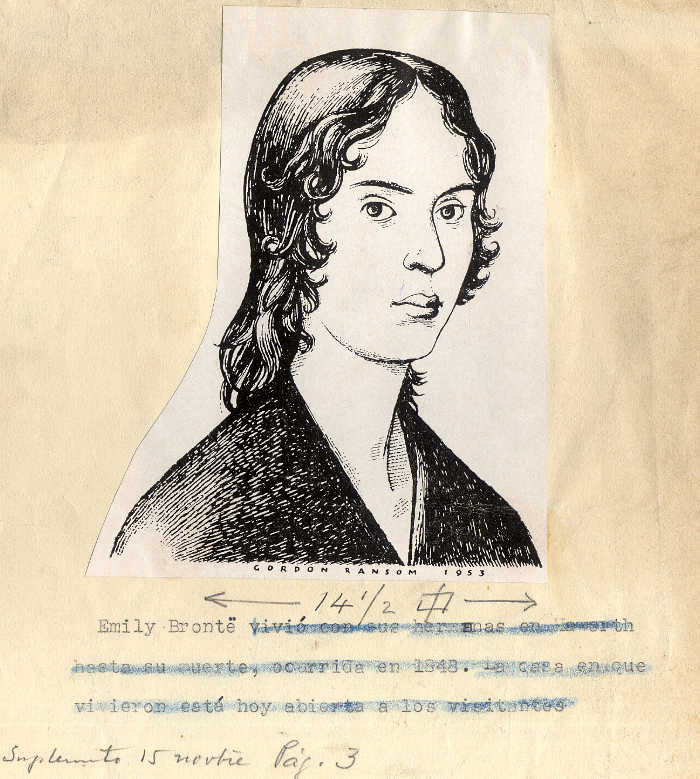 GORDON RANSOM 1953
14 1/2
Emily Brontë vivió con sus hermanas en Haworth
hasta su muerte, ocurrida en 1848. La casa en que
vivieron está hoy abierta a los visitantes
Suplemento 15 novbre Pág. 3